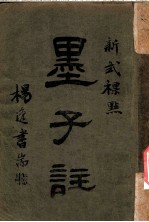 新式標點
墨子註
楊逸書耑